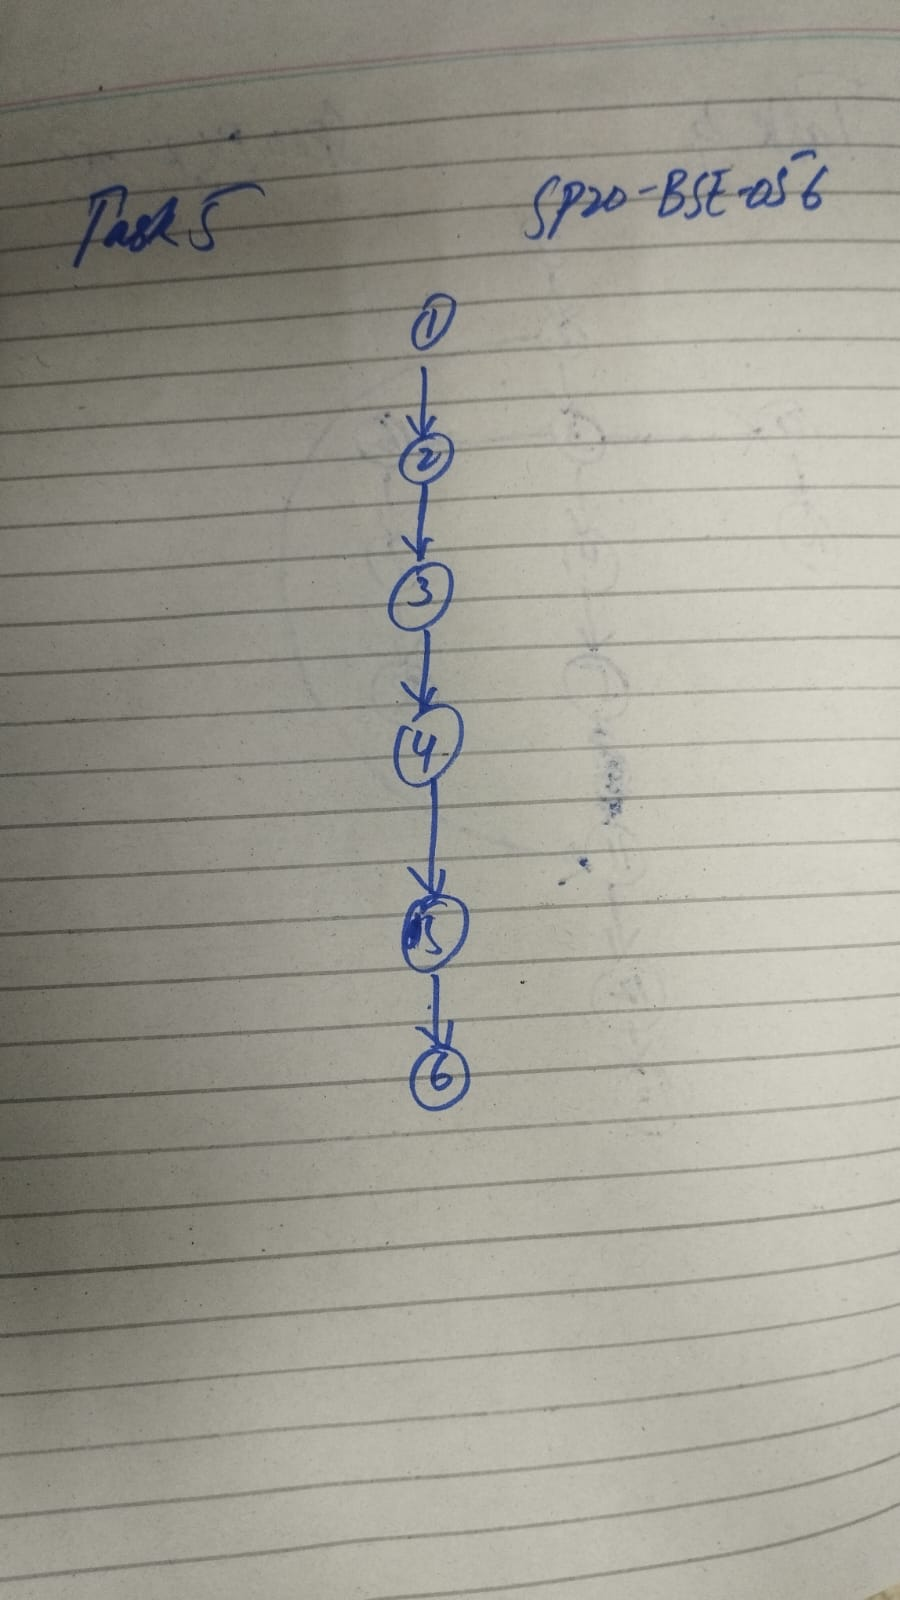 Task 5 SP20-BSE-056
1
2
3
4
5
6